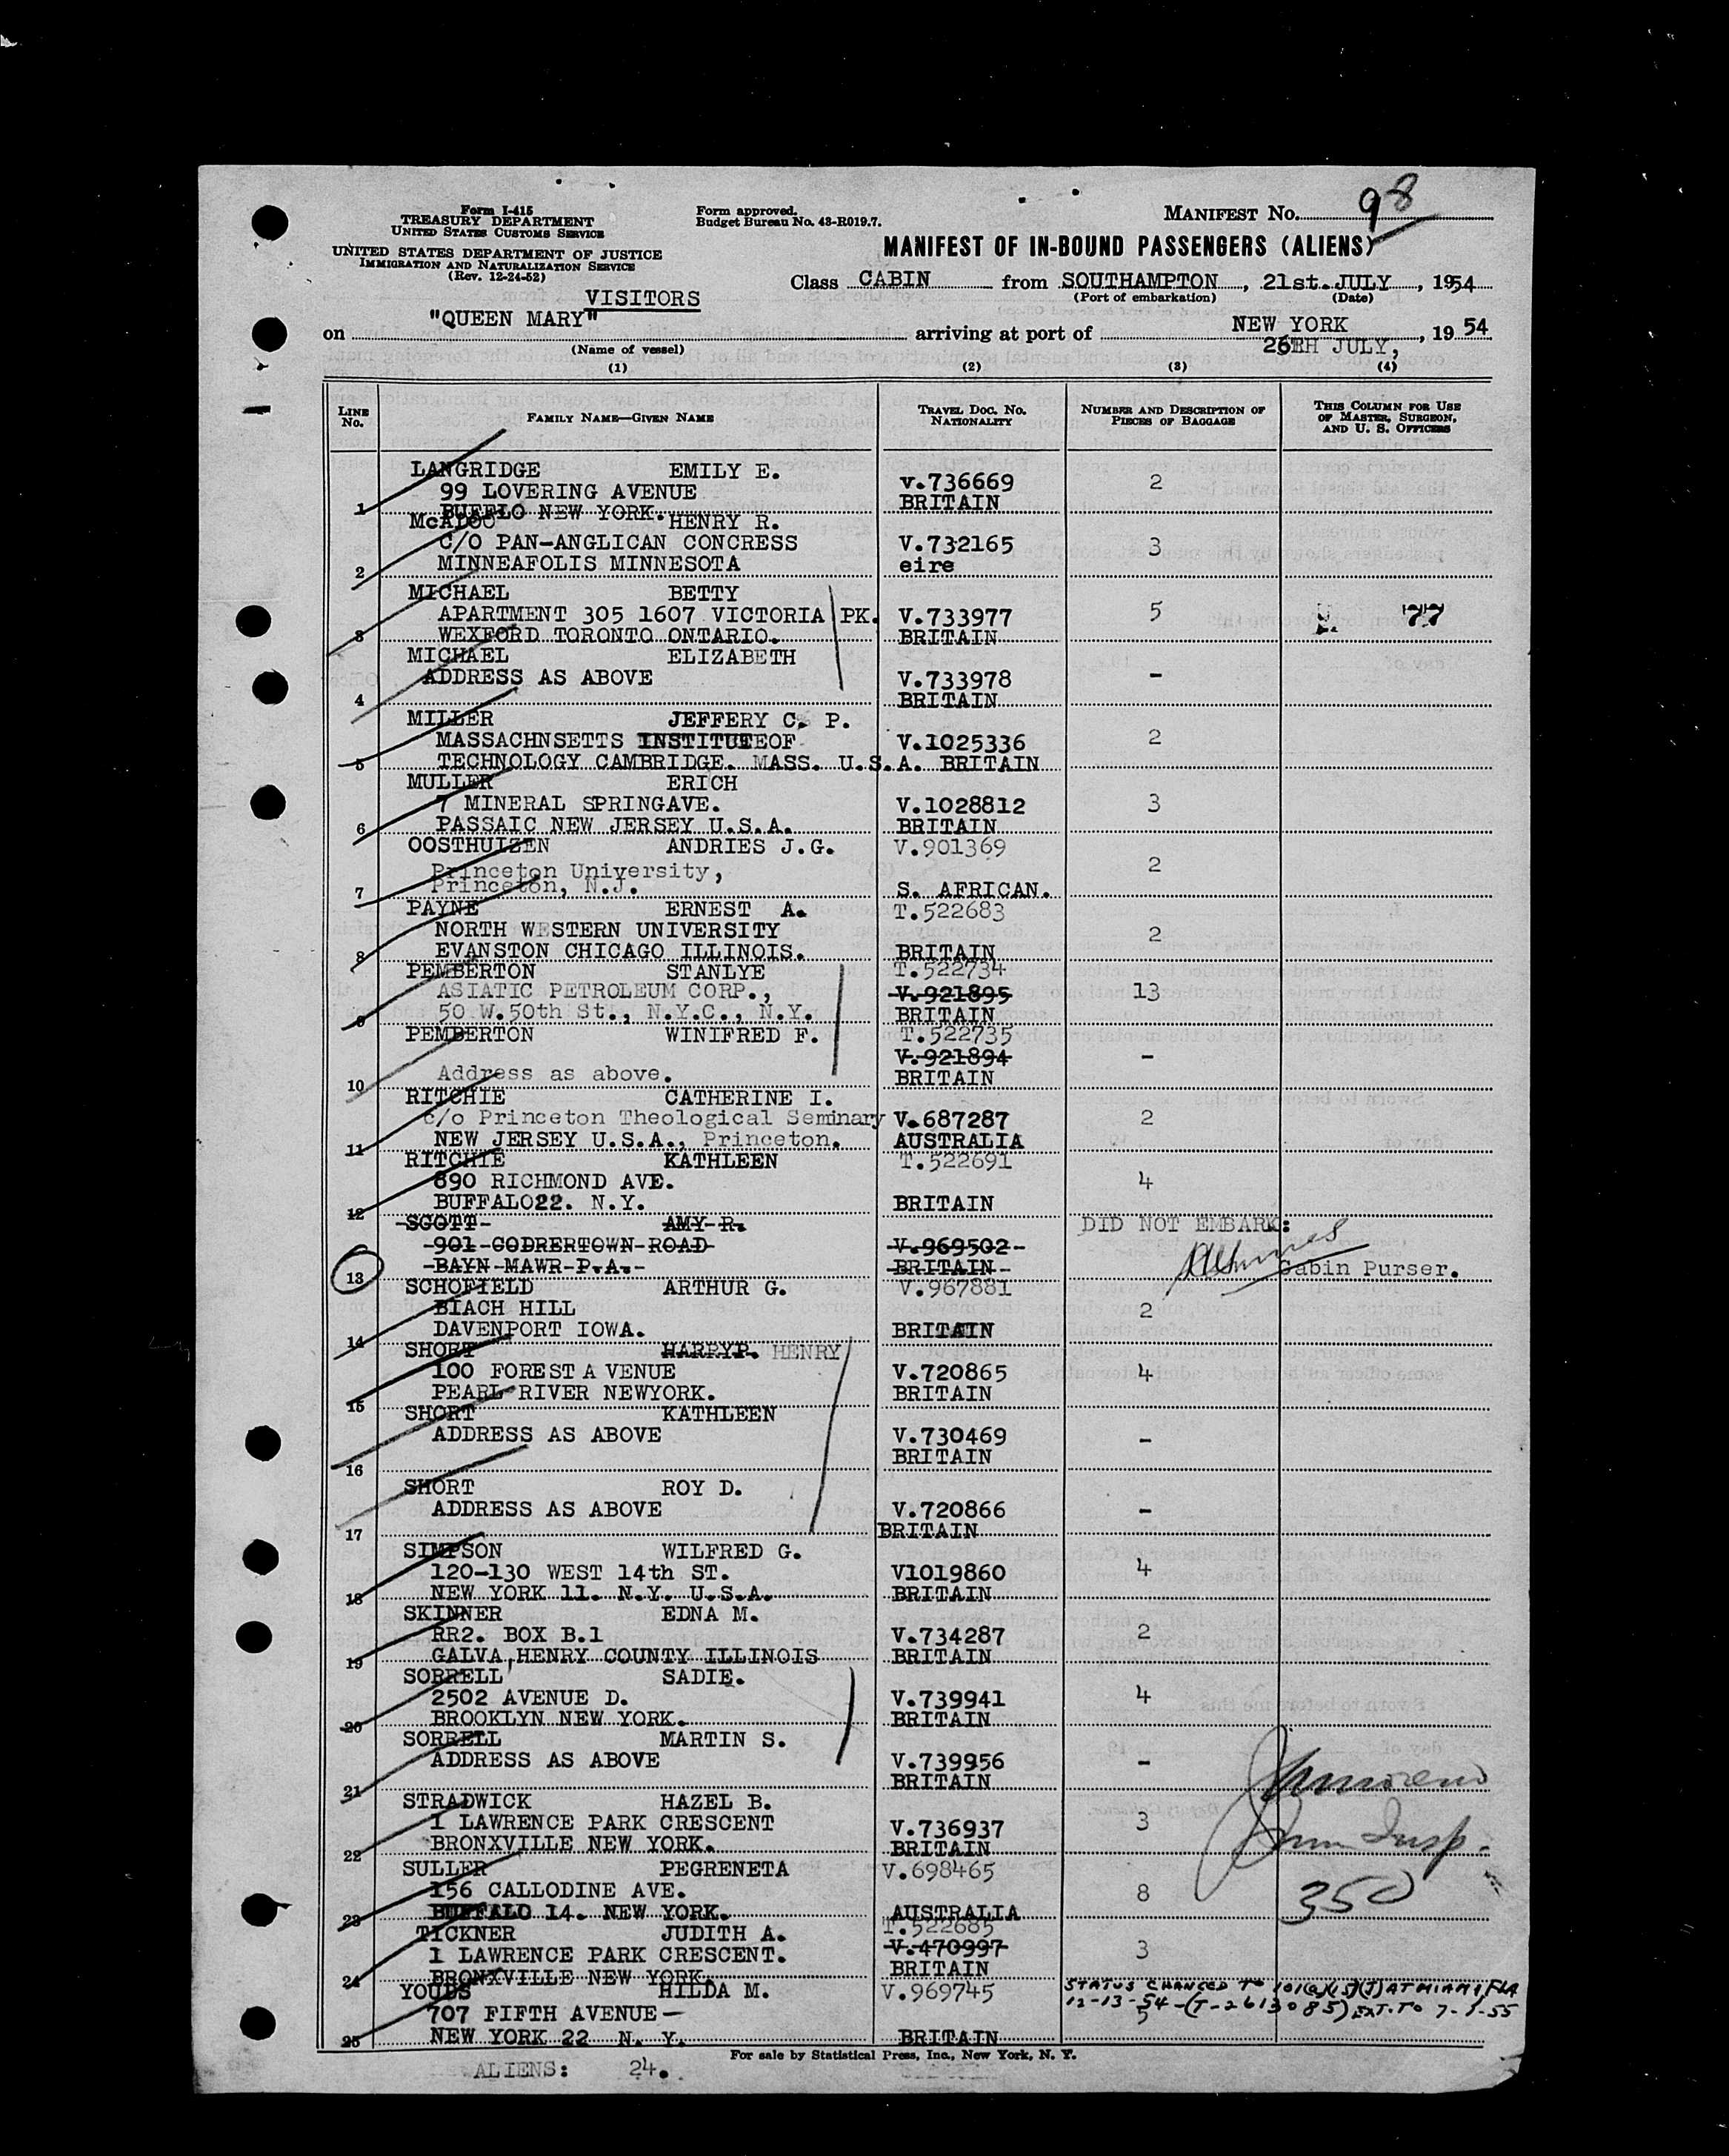 Form I-415
TREASURY DEPARTMENT
UNITED STATES CUSTOMS SERVICE
UNITED STATES DEPARTMENT OF JUSTICE
IMMIGRATION AND NATURALIZATION SERVICE
(Rev. 12-24-52)
Form approved.
Budget Bureau No. 43-R019.7.
MANIFEST No. 98
MANIFEST OF IN-BOUND PASSENGERS (ALIENS)
Class CABIN from SOUTHAMPTON, 21st. JULY, 1954
(Port of embarkation) (Date)
VISITORS
on "QUEEN MARY" arriving at port of NEW YORK, 19 54
(Name of vessel) 26TH JULY,
(1) (2) (3) (4)
LINE No. FAMILY NAME—GIVEN NAME TRAVEL DOC. NO. NATIONALITY NUMBER AND DESCRIPTION OF PIECES OF BAGGAGE THIS COLUMN FOR USE OF MASTER, SURGEON, AND U. S. OFFICERS
LANGRIDGE EMILY E.
99 LOVERING AVENUE v.736669 2
1 BUFFLO NEW YORK. BRITAIN
McADOO HENRY R.
C/O PAN-ANGLICAN CONCRESS V.732165 3
2 MINNEAFOLIS MINNESOTA eire
MICHAEL BETTY
APARTMENT 305 1607 VICTORIA PK. V.733977 5 77
3 WEXFORD TORONTO ONTARIO. BRITAIN
MICHAEL ELIZABETH
ADDRESS AS ABOVE V.733978 -
4 BRITAIN
MILLER JEFFERY C. P.
MASSACHNSETTS INSTITUTEEOF V.1025336 2
5 TECHNOLOGY CAMBRIDGE. MASS. U.S.A. BRITAIN
MULLER ERICH
7 MINERAL SPRINGAVE. V.1028812 3
6 PASSAIC NEW JERSEY U.S.A. BRITAIN
OOSTHUIZEN ANDRIES J.G. V.901369
Princeton University, 2
7 Princeton, N.J. S. AFRICAN.
PAYNE ERNEST A. T.522683
NORTH WESTERN UNIVERSITY 2
8 EVANSTON CHICAGO ILLINOIS. BRITAIN
PEMBERTON STANLYE T.522734
ASIATIC PETROLEUM CORP., V.921895 13
9 50 W.50th St., N.Y.C., N.Y. BRITAIN
PEMBERTON WINIFRED F. T.522735
V.921894 -
10 Address as above. BRITAIN
RITCHIE CATHERINE I.
c/o Princeton Theological Seminary V.687287 2
11 NEW JERSEY U.S.A., Princeton. AUSTRALIA
RITCHIE KATHLEEN T.522691
890 RICHMOND AVE. 4
12 BUFFALO22. N.Y. BRITAIN
SGOTT AMY R. DID NOT EMBARK:
901 GODRERTOWN ROAD V.969502
13 BAYN MAWR P.A. BRITAIN Cabin Purser.
SCHOFIELD ARTHUR G. V.967881
BIACH HILL 2
14 DAVENPORT IOWA. BRITAIN
SHORT HARRYP. HENRY
100 FOREST A VENUE V.720865 4
15 PEARL RIVER NEWYORK. BRITAIN
SHORT KATHLEEN
ADDRESS AS ABOVE V.730469 -
16 BRITAIN
SHORT ROY D.
ADDRESS AS ABOVE V.720866 -
17 BRITAIN
SIMPSON WILFRED G.
120-130 WEST 14th ST. V1019860 4
18 NEW YORK 11. N.Y. U.S.A. BRITAIN
SKINNER EDNA M.
RR2. BOX B.1 V.734287 2
19 GALVA, HENRY COUNTY ILLINOIS BRITAIN
SORRELL SADIE.
2502 AVENUE D. V.739941 4
20 BROOKLYN NEW YORK. BRITAIN
SORRELL MARTIN S.
ADDRESS AS ABOVE V.739956 -
21 BRITAIN
STRADWICK HAZEL B.
1 LAWRENCE PARK CRESCENT V.736937 3
22 BRONXVILLE NEW YORK. BRITAIN
Imm Insp.
SULLER PEGRENETA V.698465
156 CALLODINE AVE. 8 350
23 BUFFALO 14. NEW YORK. AUSTRALIA
TICKNER JUDITH A. T.522685
1 LAWRENCE PARK CRESCENT. V.470997 3
24 BRONXVILLE NEW YORK. BRITAIN
YOUDS HILDA M. V.969745 STATUS CHANGED TO 101(a)(15)(J) AT MIAMI, FLA
707 FIFTH AVENUE— 5 12-13-54-(T-2613085) EXT. TO 7-1-55
25 NEW YORK 22 N. Y. BRITAIN
For sale by Statistical Press, Inc., New York, N. Y.
ALIENS: 24.